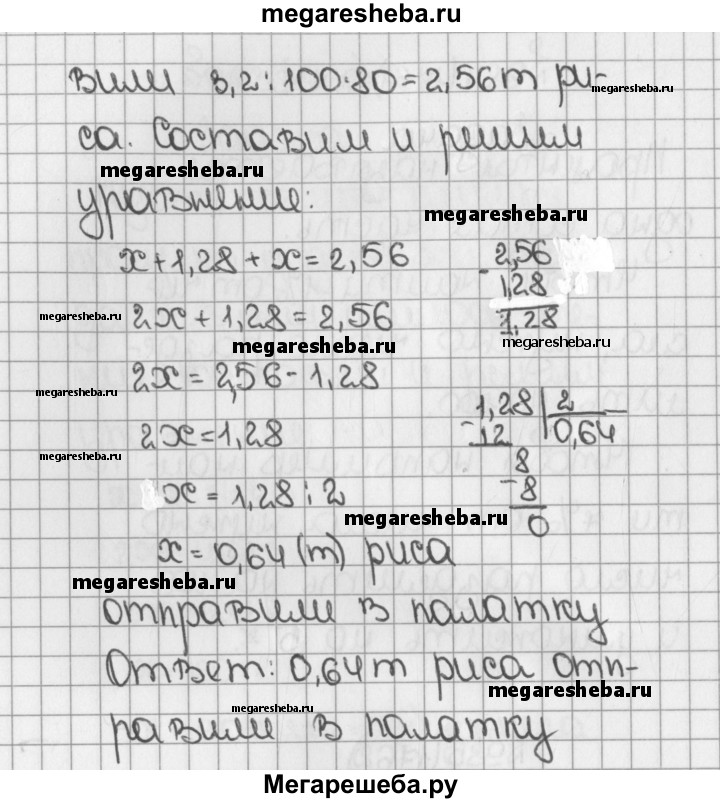 megaresheba.ru
вили 3,2:100·80=2,56т ри-
megaresheba.ru
са. Составим и решим
megaresheba.ru
уравнение:
megaresheba.ru
x+1,28+x=2,56
2,56
- 1,28
1,28
megaresheba.ru
megaresheba.ru
2x+1,28=2,56
megaresheba.ru
2x=2,56-1,28
megaresheba.ru
1,28 | 2
- 12 0,64
8
- 8
0
2x=1,28
megaresheba.ru
x=1,28:2
megaresheba.ru
x=0,64 (т) риса
megaresheba.ru
отправили в палатку
Ответ: 0,64т риса отп-
megaresheba.ru
megaresheba.ru
равили в палатку
Мегарешеба.ру